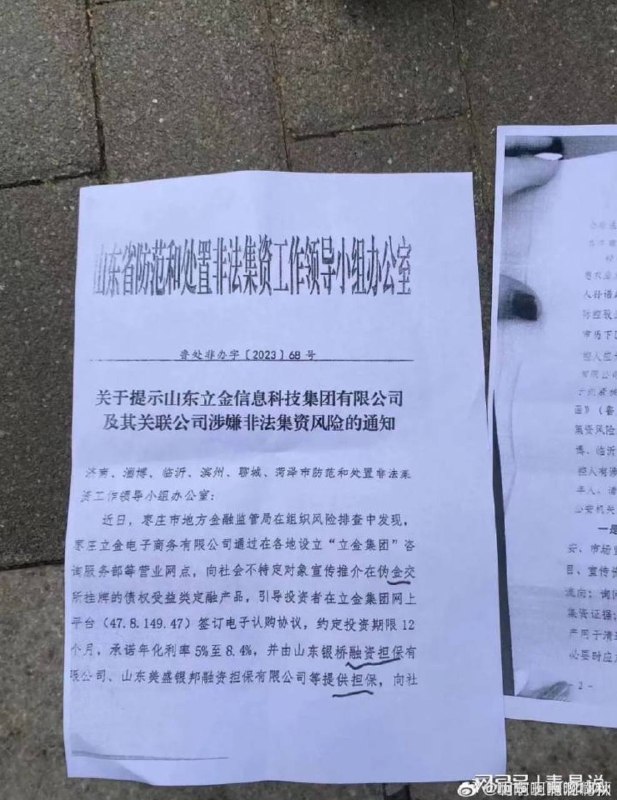 山东省防范和处置非法集资工作领导小组办公室
鲁处非办字〔2023〕68号
关于提示山东立金信息科技集团有限公司
及其关联公司涉嫌非法集资风险的通知
济南、淄博、临沂、滨州、聊城、菏泽市防范和处置非法集
资工作领导小组办公室：
近日，枣庄市地方金融监管局在组织风险排查中发现，
枣庄立金电子商务有限公司通过在各地设立“立金集团”咨
询服务部等营业网点，向社会不特定对象宣传推介在伪金交
所挂牌的债权受益类定融产品，引导投资者在立金集团网上
平台（47.8.149.47）签订电子认购协议，约定投资期限12
个月，承诺年化利率5%至8.4%，并由山东银桥融资担保有
限公司、山东美盛银邦融资担保有限公司等提供担保，向社
人孙
防控
市历下
控人应
有限公司
集资风险
博、临沂
控人有涉
年人、请
公安机关
一是
安、市场监
目、宣传长
流向；询问
集资证据；
产用于清退
必要时应
- 2 -
网易号 | 青易说